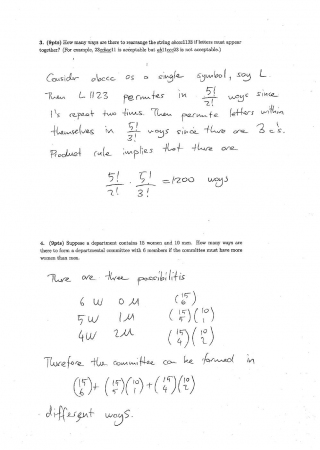 3. (9pts) How many ways are there to rearrange the string abccc1123 if letters must appear
together? (For example, is acceptable but is not acceptable.)
Consider abccc as a single symbol, say L.
Then L1123 permutes in 5!/2! ways since
1's repeat two times. Then permute letters within
themselves in 5!/3! ways since there are 3 c's.
Product rule implies that there are
5!/2! · 5!/3! = 1200 ways
4. (9pts) Suppose a department contains 15 women and 10 men. How many ways are
there to form a departmental committee with 6 members if the committee must have more
women than men.
There are three possibilitis
6 W 0 M (15 6)
5 W 1 M (15 5)(10 1)
4 W 2 M (15 4)(10 2)
Therefore the committee can be formed in
(15 6) + (15 5)(10 1) + (15 4)(10 2)
different ways.